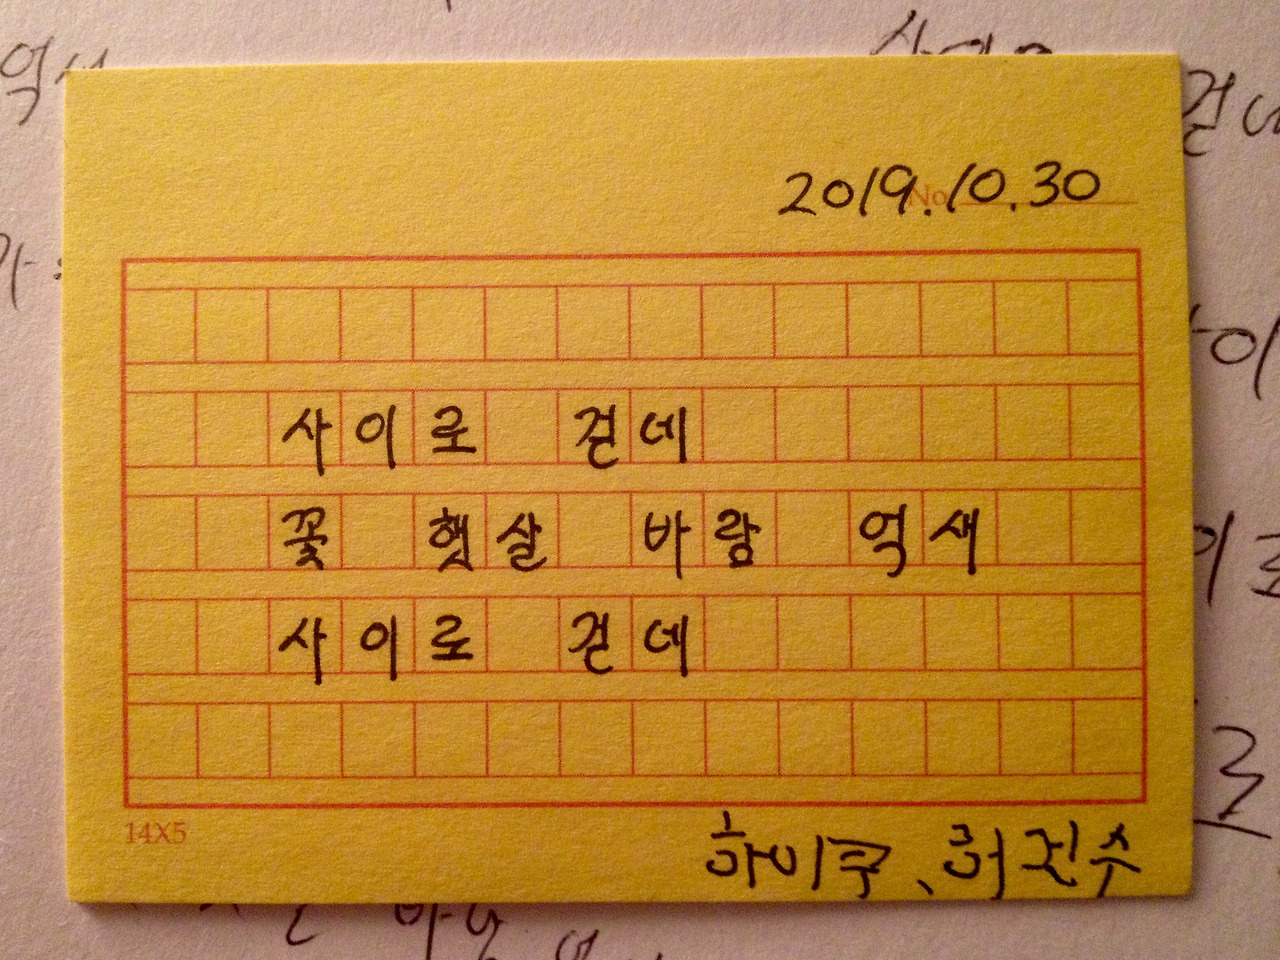 2019.10.30
No
사이로 걷네
꽃 햇살 바람 억새
사이로 걷네
14X5
하이쿠、허진수